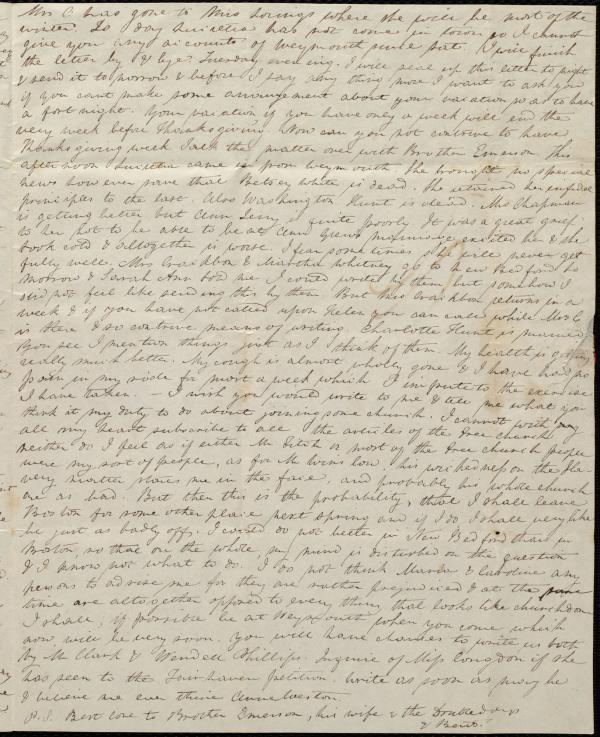 Mrs C. has gone to Miss Lorings where she will be most of the
winter. To day Lucretia has not come in town so I cannot
give you any accounts of Weymouth since Sat. I will finish
the letter by & bye. Tuesday evening. I will seal up this letter to night
& send it tomorrow & before I say any thing more I want to ask you
if you can't make some arrangement about your vacation so as to have
a fort night. Your vacation if you have only a week will end the
very week before Thanksgiving. Now can you not contrive to have
Thanksgiving week. Talk the matter over with Brother Emerson. This
afternoon Lucretia came in from Weymouth. She brought no special
news however save that Betsey White is dead. She retained her infidel
principles to the last. Also Washington Hunt is dead. Mrs Chapman
is getting better but Ann Terry is quite poorly. It was a great grief
to her not to be able to be at Ann Greene's marriage, excited her & she
took cold & altogether is worse. I fear sometimes she will never get
fully well. Mrs Crackbon & Martha Whitney go to New Bedford to
morrow & Sarah Ann told me I could write by them but somehow I
did not feel like sending this by them. But Mrs Crackbon returns in a
week & if you have not called upon Helen you can call while Mrs C.
is there & so contrive means of writing. Charlotte Hunt is married.
You see I mention things just as I think of them. My health is getting
really much better. My cough is almost wholly gone & I have had no
pain in my side for most a week which I impute to the exercise
I have taken. — I wish you would write to me & tell me what you
think it my duty to do about joining some church. I cannot with
all my heart subscribe to all the articles of the Free church
neither do I feel as if either Mr Fitch or most of the Free church people
were my sort of people, as for Mr Winslow, his wickedness on the Sla-
very matter stares me in the face, and probably his whole church
are as bad. But then this is the probability, that I shall leave
Boston for some other place next Spring and if I do I shall very like
be just as badly off. I could do not better in New Bedford than in
Boston, so that on the whole, my mind is disturbed on the question
& I know not what to do. I do not think Maria & Caroline any
persons to advise me for they are rather prejudiced & at the same
time are altogether opposed to every thing that looks like churchdom
I shall, if possible be at Weymouth when you come which
now will be very soon. You will have chances to write us both
by Mr Clark & Wendell Phillips. Inquire of Miss Congdon if she
has seen to the Fairhaven petition. Write as soon as may be
& believe me ever thine Anne Weston.
P.S. Best love to Brother Emerson, his wife & the Doubledays
& Bents.